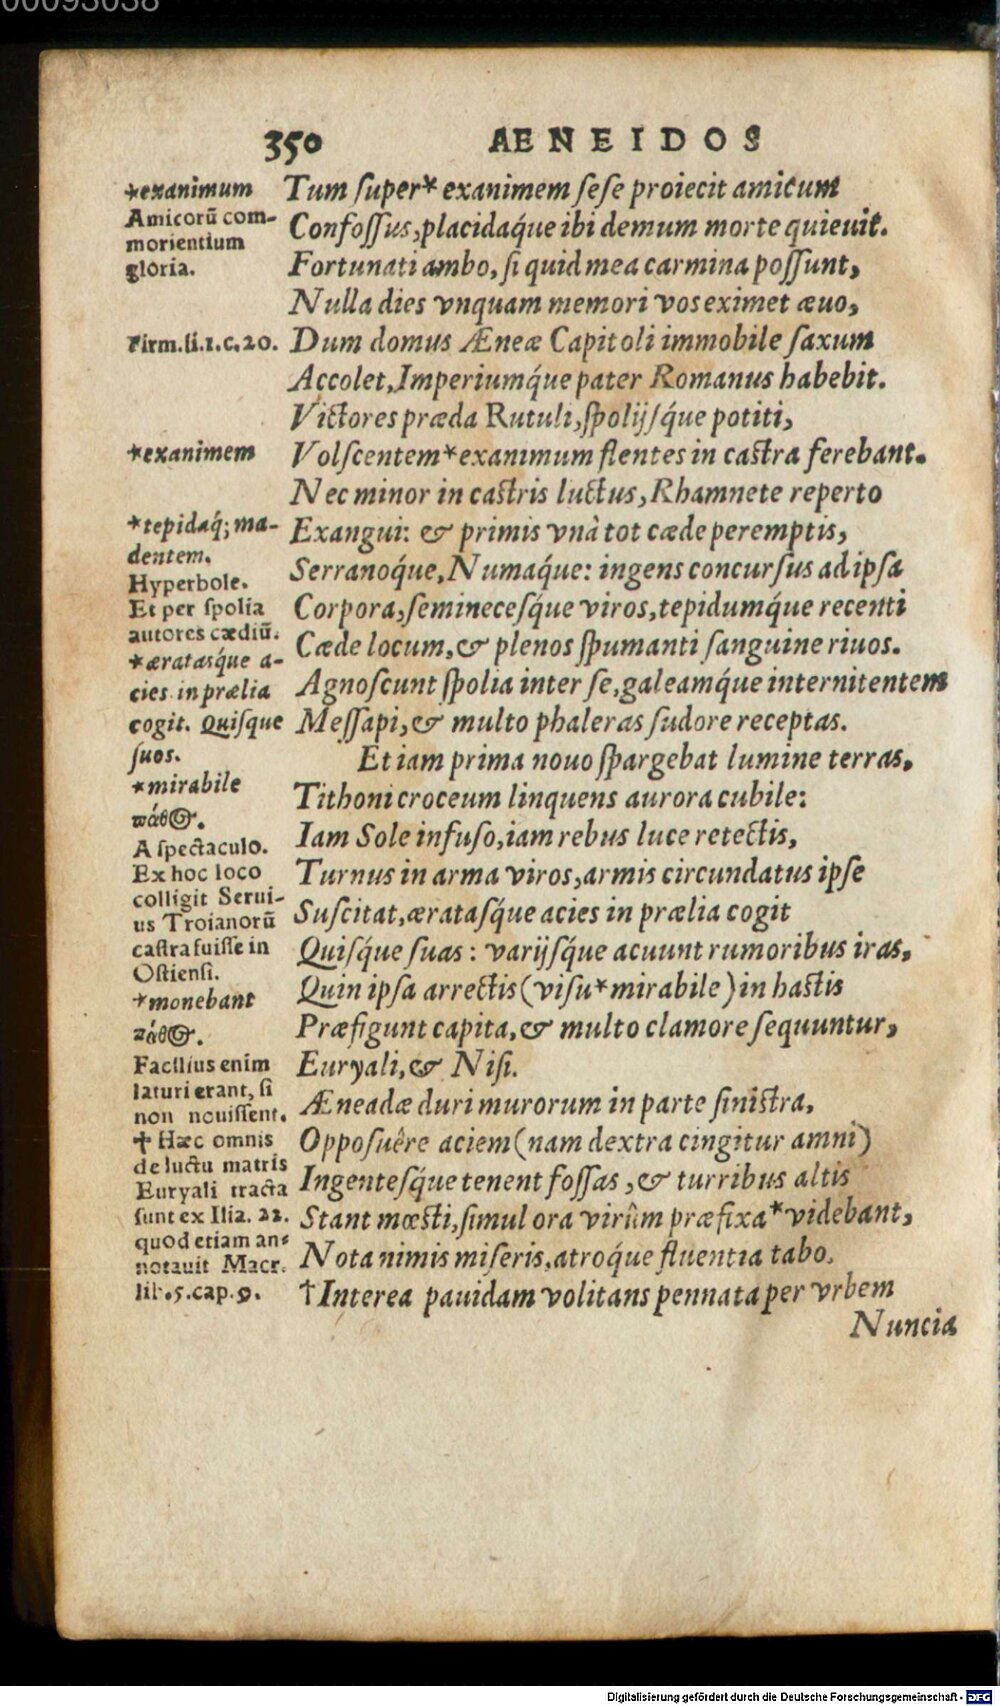 00093038
350 AENEIDOS
*exanimum
Amicorū com-
morientium
gloria.
Firm.li.1.c.20.
*exanimem
*tepidaq́; ma-
dentem.
Hyperbole.
Et per ſpolia
autores cædiū.
*æratasq́ue a-
cies in prælia
cogit. Quiſque
ſuos.
*mirabile
πάθος.
A ſpectaculo.
Ex hoc loco
colligit Serui-
us Troianorū
caſtra fuiſſe in
Oſtienſi.
*monebant
πάθος.
Facilius enim
laturi erant, ſi
non nouiſſent.
✝ Hæc omnis
de luctu matris
Euryali tracta
ſunt ex Ilia. 22.
quod etiam an-
notauit Macr.
lib.5.cap.9.
Tum ſuper* exanimem ſeſe proiecit amicum
Confoſſus, placidaq́ue ibi demum morte quieuit.
Fortunati ambo, ſi quid mea carmina poſſunt,
Nulla dies vnquam memori vos eximet æuo,
Dum domus Æneæ Capitoli immobile ſaxum
Accolet, Imperiumq́ue pater Romanus habebit.
Victores præda Rutuli, ſpolijſq́ue potiti,
Volſcentem* exanimum flentes in caſtra ferebant.
Nec minor in caſtris luctus, Rhamnete reperto
Exangui: & primis vnà tot cæde peremptis,
Serranoq́ue, Numaq́ue: ingens concurſus ad ipſa
Corpora, ſeminecesq́ue viros, tepidumq́ue recenti
Cæde locum, & plenos ſpumanti ſanguine riuos.
Agnoſcunt ſpolia inter ſe, galeamq́ue internitentem
Meſſapi, & multo phaleras ſudore receptas.
Et iam prima nouo ſpargebat lumine terras,
Tithoni croceum linquens aurora cubile:
Iam Sole infuſo, iam rebus luce retectis,
Turnus in arma viros, armis circundatus ipſe
Suſcitat, æratasq́ue acies in prælia cogit
Quiſq́ue ſuas: varijſq́ue acuunt rumoribus iras,
Quin ipſa arrectis (viſu* mirabile) in haſtis
Præfigunt capita, & multo clamore ſequuntur,
Euryali, & Niſi.
Æneadæ duri murorum in parte ſiniſtra,
Oppoſuêre aciem (nam dextra cingitur amni)
Ingentesq́ue tenent foſſas, & turribus altis
Stant mœſti, ſimul ora virûm præfixa* videbant,
Nota nimis miſeris, atroq́ue fluentia tabo.
†Interea pauidam volitans pennata per vrbem
Nuncia
Digitalisierung gefördert durch die Deutsche Forschungsgemeinschaft - DFG